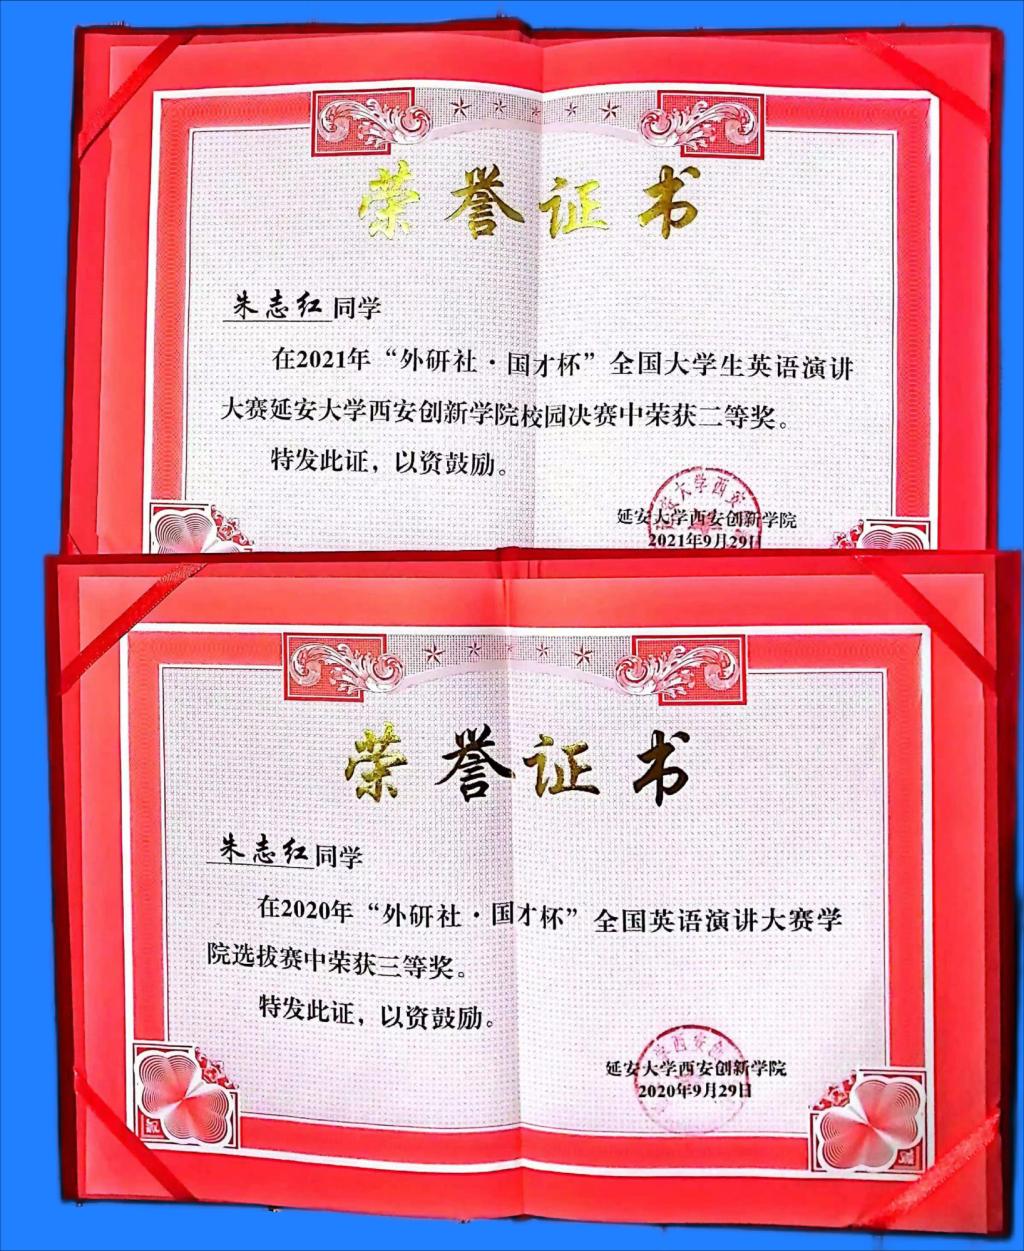 荣誉证书
朱志红同学
在2021年“外研社·国才杯”全国大学生英语演讲
大赛延安大学西安创新学院校园决赛中荣获二等奖。
特发此证，以资鼓励。
延安大学西安创新学院
2021年9月29日
荣誉证书
朱志红同学
在2020年“外研社·国才杯”全国英语演讲大赛学
院选拔赛中荣获三等奖。
特发此证，以资鼓励。
延安大学西安创新学院
2020年9月29日